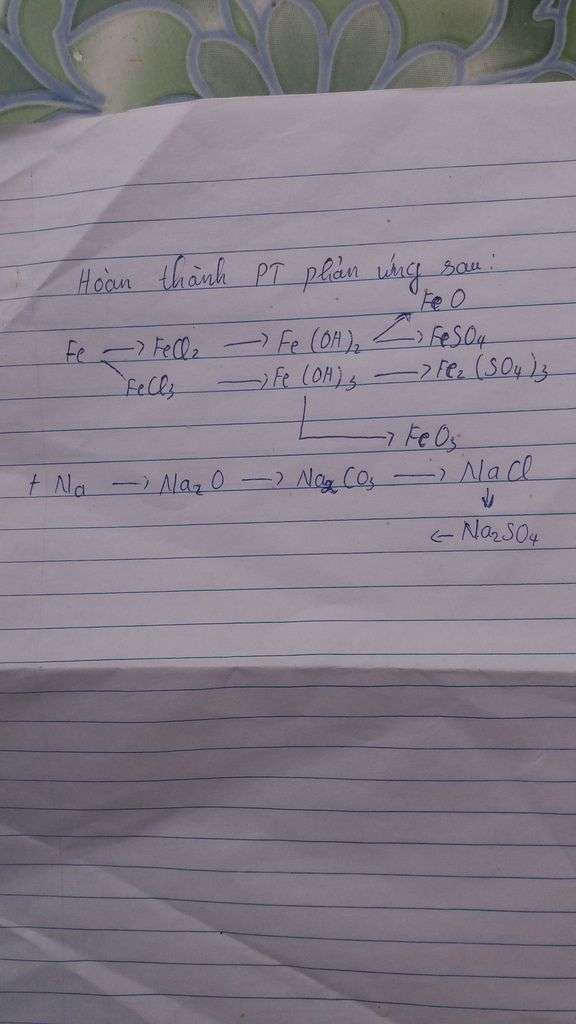 Hoàn thành PT phản ứng sau:
FeO
Fe → FeCl2 → Fe (OH)2 → FeSO4
FeCl3 → Fe (OH)3 → Fe2 (SO4)3
→ FeO3
+ Na → Na2O → Na2CO3 → NaCl
↓
← Na2SO4